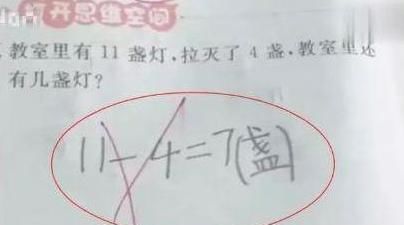 打开思维空间
教室里有 11 盏灯,拉灭了 4 盏,教室里还
有几盏灯?
11-4=7(盏)